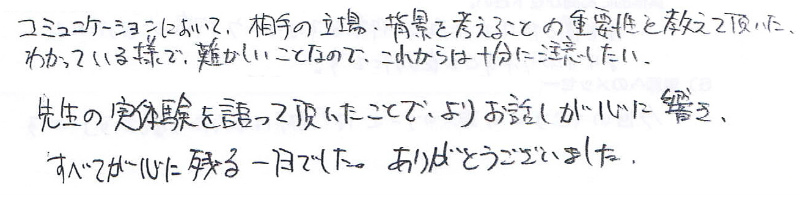 コミュニケーションにおいて、相手の立場・背景を考えることの重要性を教えて頂いた。
わかっている様で、難かしいことなので、これからは十分に注意したい。
先生の実体験を語って頂いたことで、よりお話しが心に響き、
すべてが心に残る一日でした。ありがとうございました。